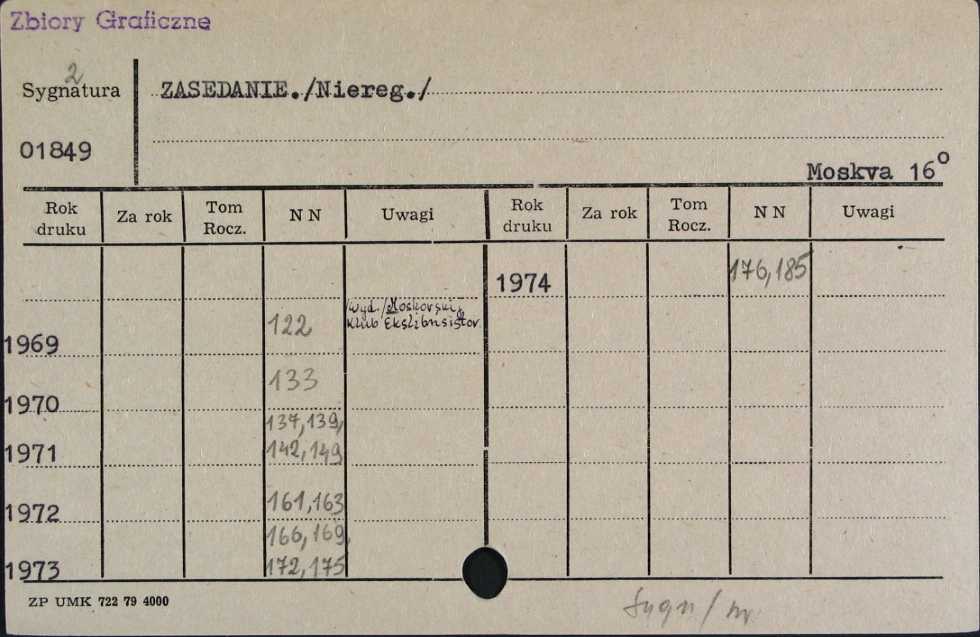 Zbiory Graficzne
2
Sygnatura
ZASEDANIE./Niereg./
01849
Moskva 16°
Rok druku Za rok Tom Rocz. N N Uwagi Rok druku Za rok Tom Rocz. N N Uwagi
1974 176,185
1969 122 /Wyd./Moskovskij Klub Ekslibrisistov
1970 133
1971 137,139, 142,149
1972 161,163
1973 166,169, 172,175
ZP UMK 722 79 4000
Sygn/nr